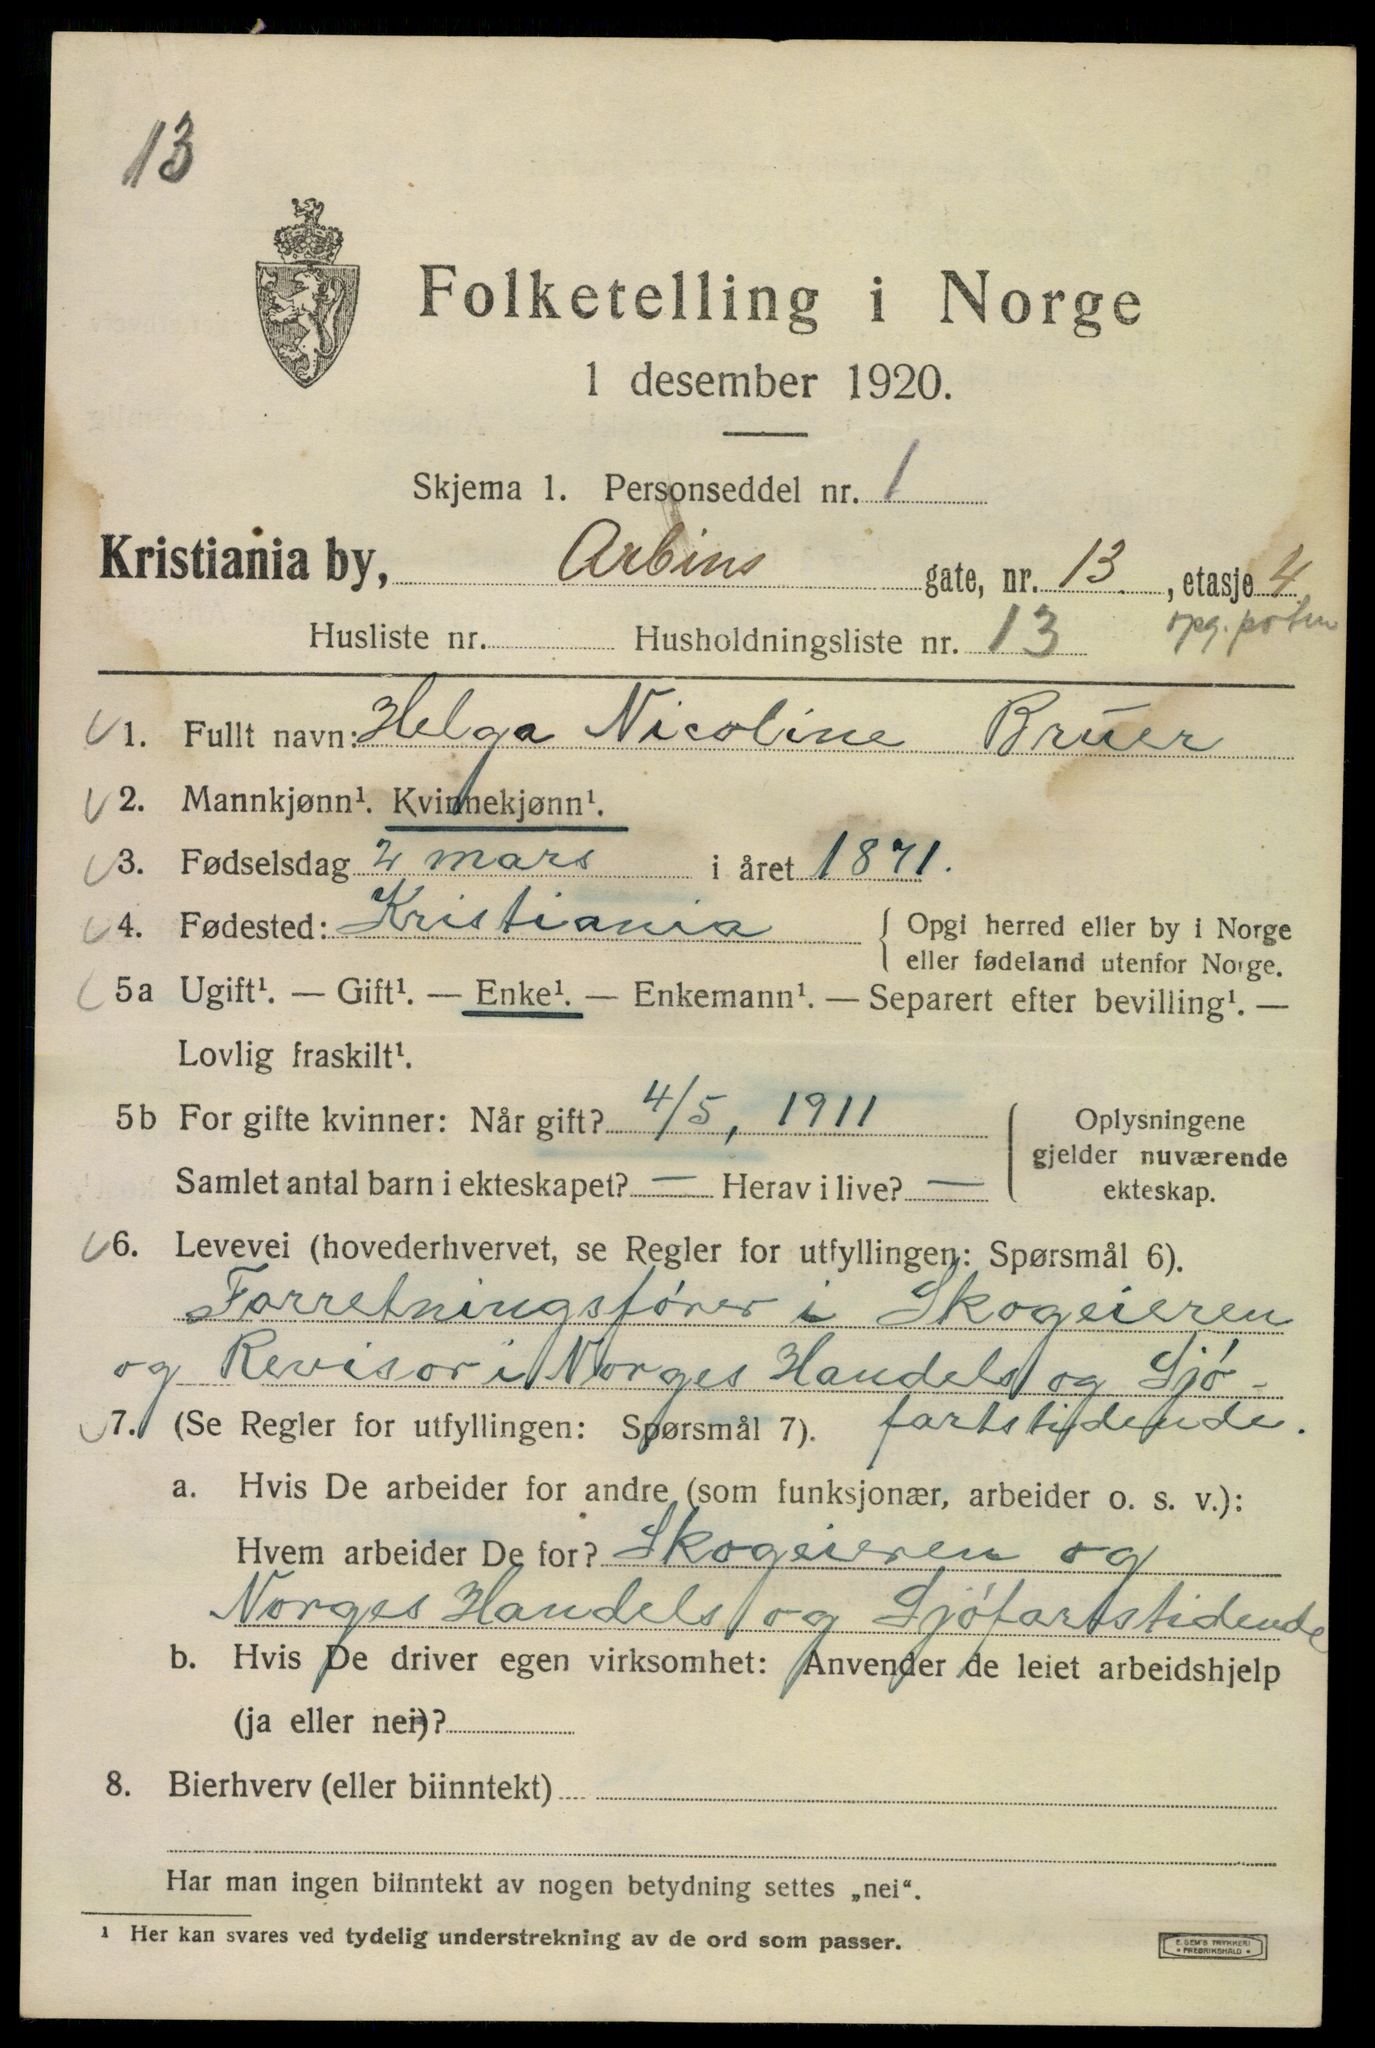 13
Folketelling i Norge
1 desember 1920.
Skjema 1. Personseddel nr. 1
Kristiania by, Arbins gate, nr. 13, etasje 4
Husliste nr. Husholdningsliste nr. 13 opg.
1. Fullt navn: Helga Nicoline Brüer
2. Mannkjønn¹. Kvinnekjønn¹.
3. Fødselsdag 2 mars i året 1871.
4. Fødested: Kristiania { Opgi herred eller by i Norge
eller fødeland utenfor Norge.
5a Ugift¹. — Gift¹. — Enke¹. — Enkemann¹. — Separert efter bevilling¹. —
Lovlig fraskilt¹.
5b For gifte kvinner: Når gift? 4/5, 1911 Oplysningene
gjelder nuværende
Samlet antal barn i ekteskapet? — Herav i live? — ekteskap.
6. Levevei (hovederhvervet, se Regler for utfyllingen: Spørsmål 6).
Forretningsfører i Skogeieren
og Revisor i Norges Handels og Sjö-
7. (Se Regler for utfyllingen: Spørsmål 7). fartstidende.
a. Hvis De arbeider for andre (som funksjonær, arbeider o. s. v.):
Hvem arbeider De for? Skogeieren og
Norges Handels og Sjöfartstidende
b. Hvis De driver egen virksomhet: Anvender de leiet arbeidshjelp
(ja eller nei)?
8. Bierhverv (eller biinntekt)
Har man ingen biinntekt av nogen betydning settes „nei“.
¹ Her kan svares ved tydelig understrekning av de ord som passer.
E. SEM'S TRYKKERI
• FREDRIKSHALD •